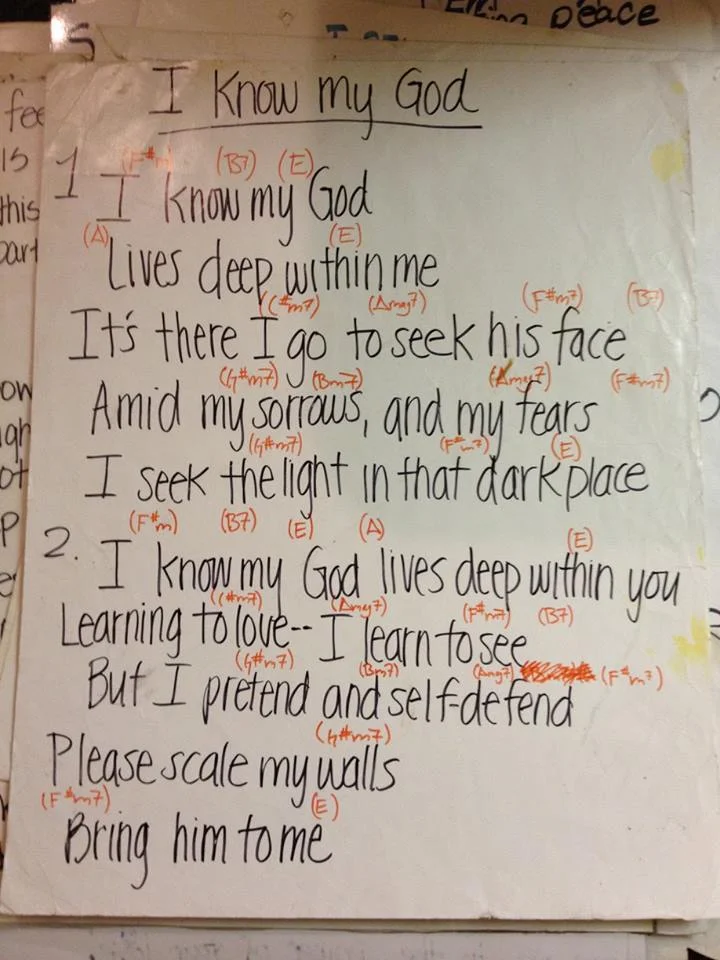 Peace
5
I Know my God
fee
is
this
part
1 (F#m) (B7) (E)
I know my God
(A) (E)
Lives deep within me
(C#m7) (Amaj7) (F#m7) (B7)
It's there I go to seek his face
(G#m7) (Bm7) (Amaj7) (F#m7)
Amid my sorrows, and my fears
(G#m7) (F#m7) (E)
I seek the light in that dark place
(F#m) (B7) (E) (A) (E)
2. I know my God lives deep within you
(C#m7) (Amaj7) (F#m7) (B7)
Learning to love-- I learn to see
(G#m7) (Bm7) (Amaj7) (F#m7)
But I pretend and self-defend
(G#m7)
Please scale my walls
(F#m7) (E)
Bring him to me